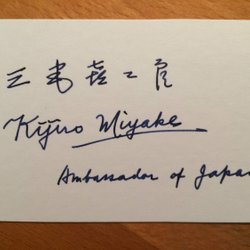 三宅喜二郎
Kijiro Miyake
Ambassador of Japan